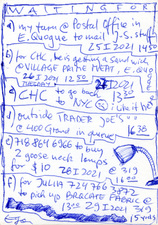 WAITING FOR
a) my turn @ Postal Office in
E. Quogue to mail J.S. stuff
25 I 2021 14 50
b) for CHC, he is getting a sand with
@ VILLAGE PRIME MEAT, E. QUO
26 I 2021 12 50
c) CHC to go back
to NYC I like it here
d) outside TRADER JOE'S
@ 400 Grand in queue
16 38
e) 718 864 6966 to buy
2 goose neck lamps
for $10 28 I 2021 @ 319
16 00
f) for JULIA 724 766 3872
to pick up BROCATE FABRIC @
13 00 29 I 2021
15 yards